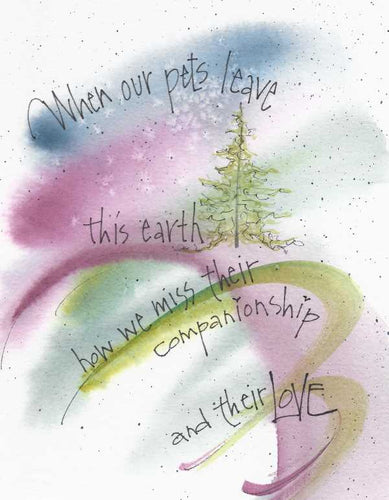 When our pets leave
this earth
how we miss their
companionship
and their LOVE